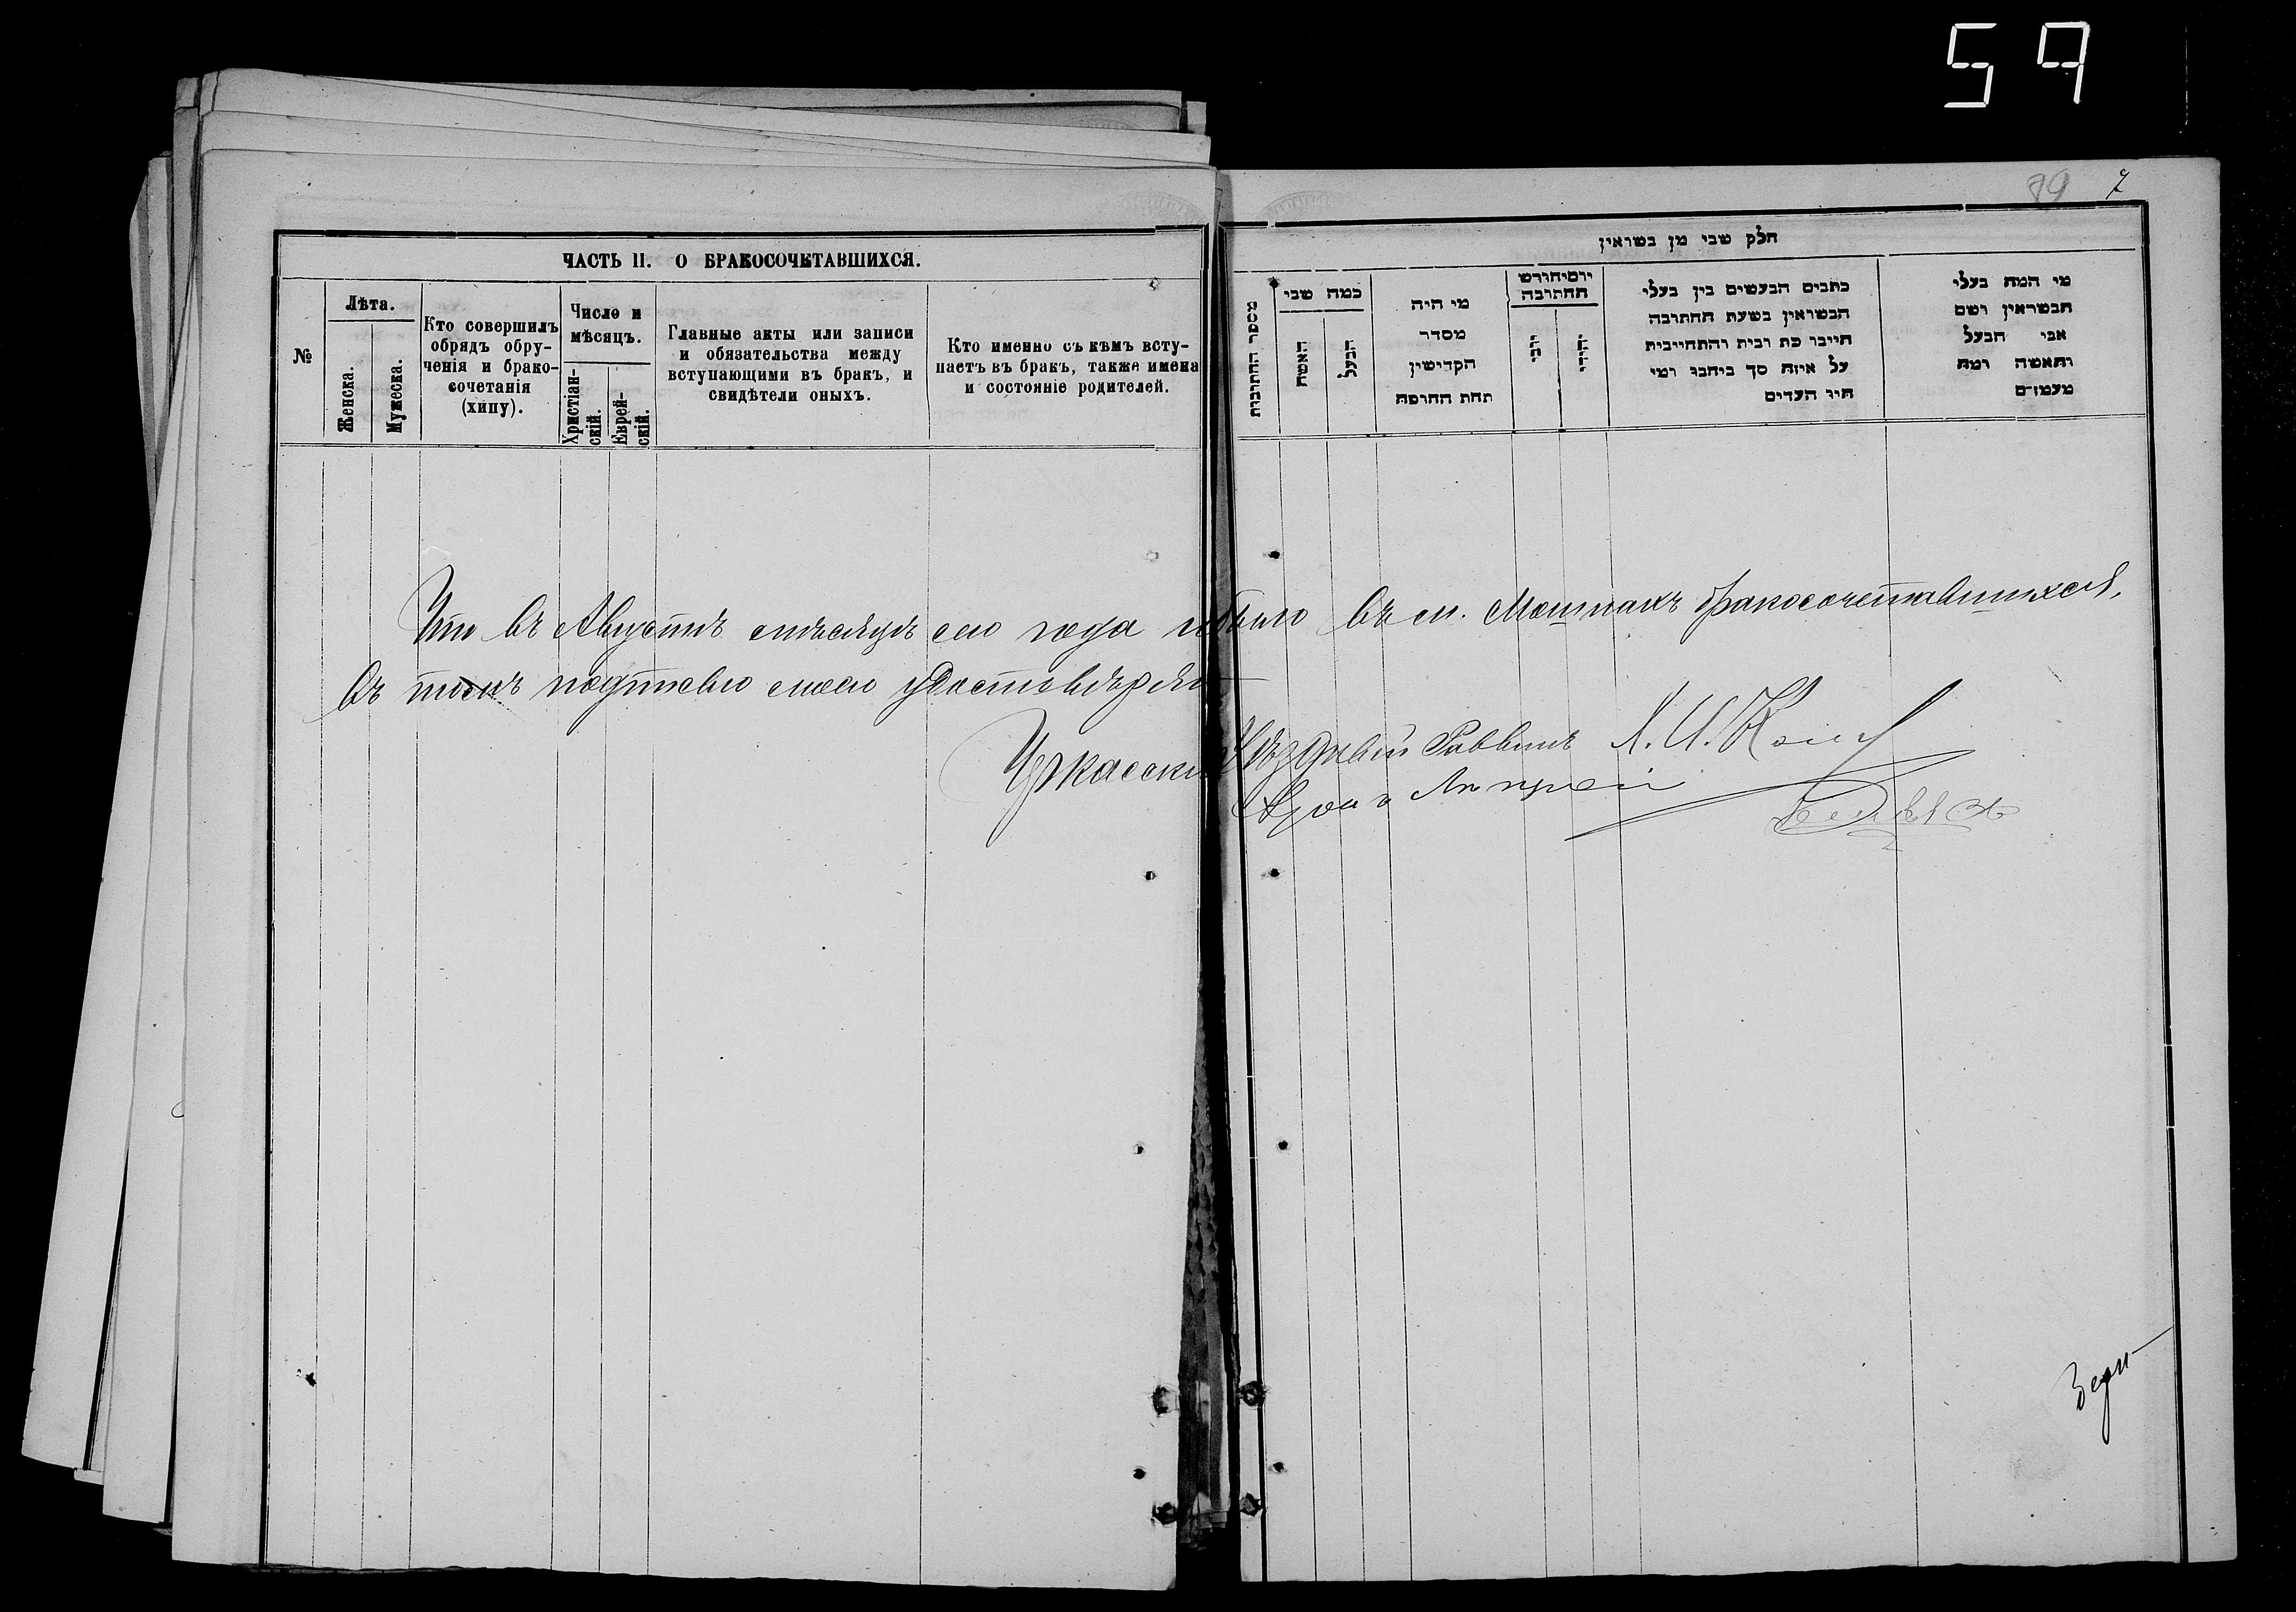 59
89 7
ЧАСТЬ II. О БРАКОСОЧЕТАВШИХСЯ.
№
Лѣта.
Женска.
Мужеска.
Кто совершилъ
обрядъ обру-
ченія и брако-
сочетанія
(хипу).
Число и
мѣсяцъ.
Христіан-
скій.
Еврей-
скій.
Главные акты или записи
и обязательства между
вступающими въ бракъ, и
свидѣтели оныхъ.
Кто именно съ кѣмъ всту-
паетъ въ бракъ, также имена
и состоянiе родителей.
חלק שני מן נשואין
מספר החתונות
כמה שני
האשה
הבעל
מי היה
מסדר
הקדישין
תחת החופה
יוםיחודש
החתונה
יוני
יהודי
כתבים הנעשים בין בעלי
הנשואין בשעת החתונה
חייבו כת ובית והתחייבית
על איזה סך ביחבו ומי
היו העדים
מי המה בעלי
הנשואין ושם
אבי הבעל
והאשה ומה
מעמדם
Что въ Августѣ мѣсяцѣ сего года небыло въ м. Мошнахъ бракосочетавшихся,
въ томъ подписью моею удостовѣряю
Черкасскій Уѣздный Раввинъ